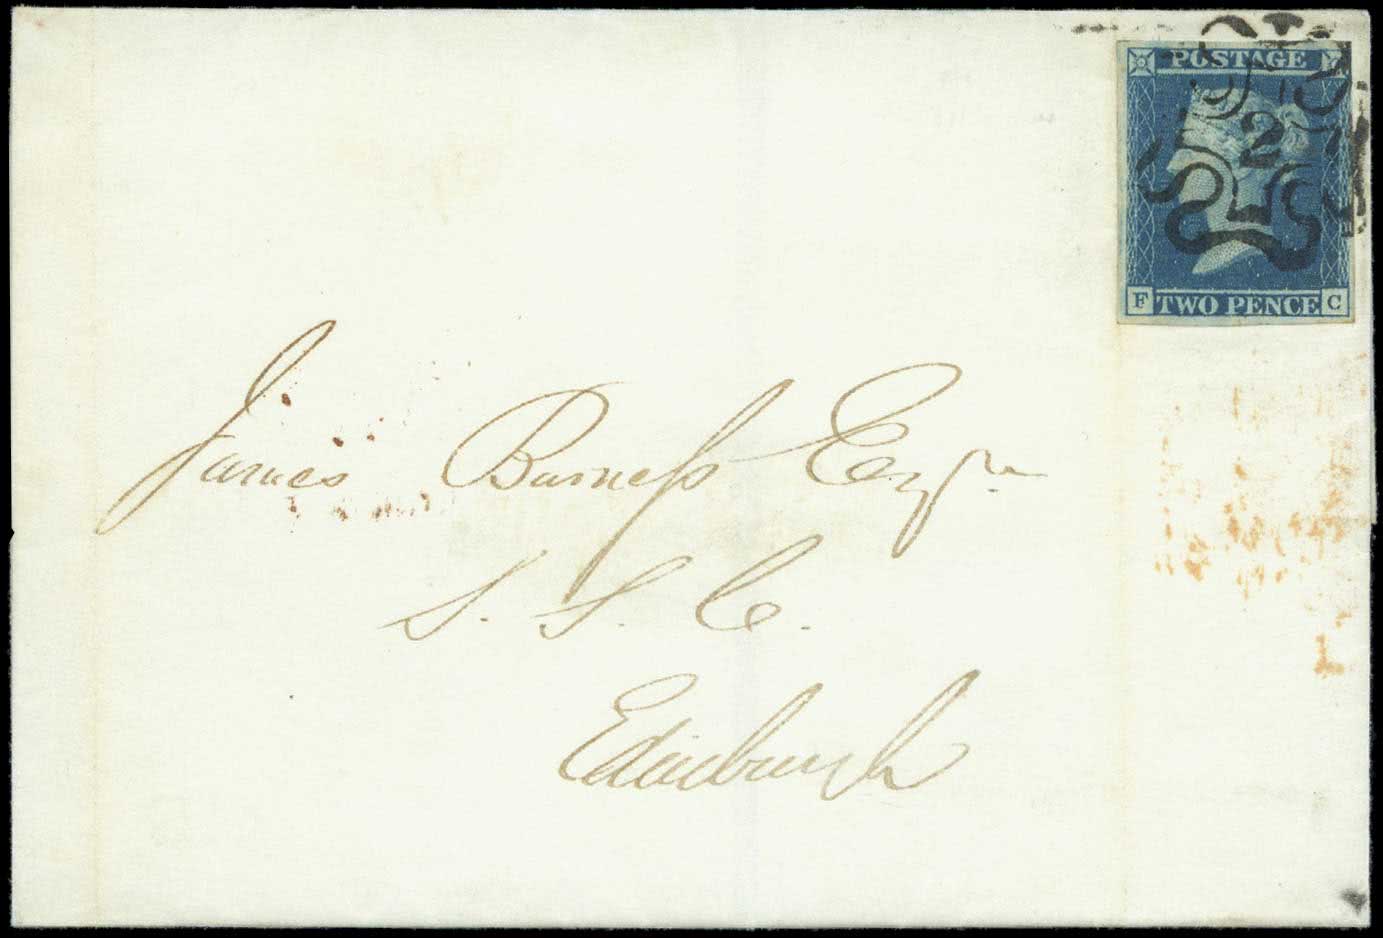 POSTAGE
2
F TWO PENCE C
James Burness Esqr
S. S. C.
Edinburgh